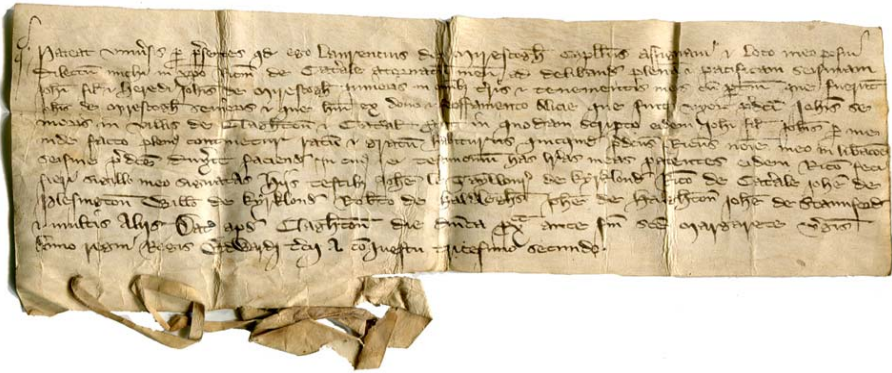 Pateat univ'sis p' p'sentes qd ego Laurencius de Myrescogh Capell'us assignavi & loco meo posui
dilectum michi in xpo Ric'm de Cat'ale attornat' meu' ad delib'and' plena' & pacificam seisinam
Joh'i fil' & heredi Joh'is de Myrescogh Junioris in om'ib' t'ris & tenementis meis cu' p'tin' que fuerunt
Joh'is de Myrescogh senioris & que h'ui ex dono & feoffamento Alicie que fuit uxor p'd'c'i Joh'is se
nioris in villis de Claghton & Cat'ale in quodam sc'ipto eidem Joh'i fil' Joh'is p' me
inde facto pleni' continetur ratu' & gratu' h'iturus quicquid p'd'cus Ric'us no'ie meo in lib'acoe
seisine p'd'ce dux'it faciend' In cui' rei testimoniu' has l'ras meas patentes eidem Ric'o feci
fieri sigillo meo signatas Hiis testib' Joh'e de Kyrklond Ric'o de Cat'ale Joh'e de
Plesington Will'o de Kyrklond Rob'to de Haldleghs Joh'e de Haighton Joh'e de Staunford
& multis aliis Dat' apd' Claghton die D'nica p'x' ante f'm s'c'e Margarete v'gi's
anno regni Regis Edwardi t'cii a co'questu tricesimo secundo.